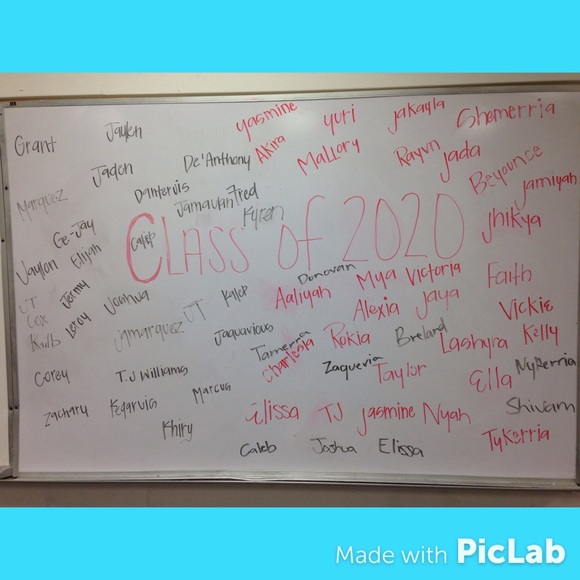 Yasmine Yuri Jakayla Shemerria
Grant Jaylen Akira Mallory Rayvn Jada
Jadon De'Anthony Beyounce Jamiyah
Marquez Dantervis Jamavian Fred
Ge-Jay Kyren Jhikya
Caleb
CLASS of 2020
Jaylon Elijah Donovan
Jermy Joshua JT Kaleb Aaliyah Mya Victoria Faith
JT Alexia Jaya Vickie
Cox Leroy Jamarquez Jaquavious Rokia Breland Lashyra Kelly
Tamerra
Charlesia
Corey T.J Williams Zaqueria Taylor Ella NyKerria
Marcus
Zachary Kedarvis Elissa TJ Jasmine Nyah Shivam
Khiry Tykerria
Caleb Joshua Elissa
Made with PicLab